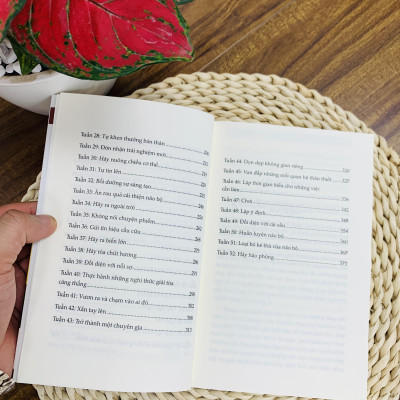 Tuần 28: Tự khen thưởng bản thân
Tuần 29: Đón nhận trải nghiệm mới
Tuần 30: Hãy nuông chiều cơ thể
Tuần 31: Tự tin lên
Tuần 32: Bồi dưỡng sự sáng tạo
Tuần 33: Ăn rau quả cải thiện não bộ
Tuần 34: Hãy ra ngoài trời
Tuần 35: Không nói chuyện phiếm
Tuần 36: Gửi tín hiệu cầu cứu
Tuần 37: Hãy ra biển lớn
Tuần 38: Hãy tỏa chút hương
Tuần 39: Đối diện với nỗi sợ
Tuần 40: Thực hành những nghi thức giải tỏa
căng thẳng
Tuần 41: Vươn ra và chạm vào ai đó
Tuần 42: Xắn tay lên
Tuần 43: Trở thành một chuyên gia 313
Tuần 44: Dọn dẹp không gian riêng
Tuần 45: Vun đắp những mối quan hệ thân thiết
Tuần 46: Lập thời gian biểu cho những việc
cần làm
Tuần 47: Chơi
Tuần 48: Lập ý định
Tuần 49: Đối diện với cái xấu
Tuần 50: Huấn luyện não bộ
Tuần 51: Loại bỏ kẻ thù của não bộ
Tuần 52: Hãy hào phóng